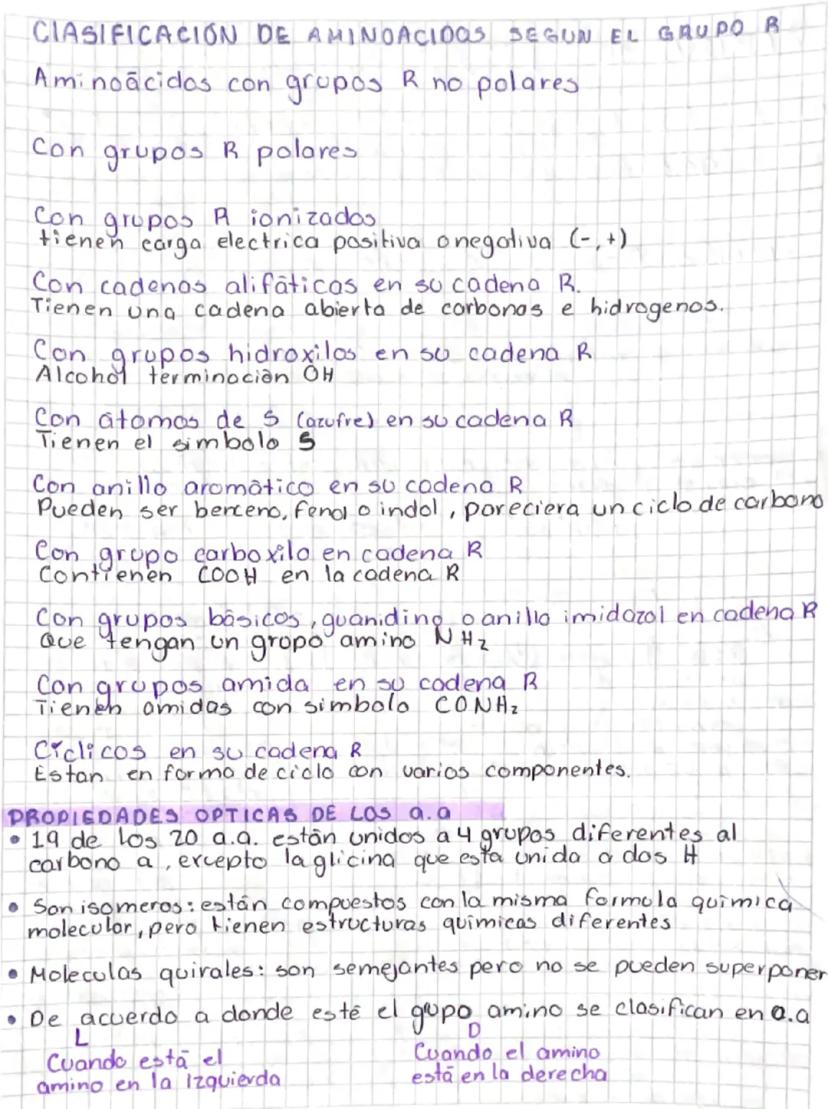 CLASIFICACIÓN DE AMINOACIDOS SEGUN EL GRUPO R
Aminoácidos con grupos R no polares
Con grupos R polares
Con grupos R ionizados
tienen carga electrica positiva o negativa (-,+)
Con cadenas alifáticas en su cadena R.
Tienen una cadena abierta de carbonos e hidrogenos.
Con grupos hidroxilos en su cadena R
Alcohol terminación OH
Con átomos de S (azufre) en su cadena R
Tienen el simbolo S
Con anillo aromático en su cadena R
Pueden ser benceno, fenol o indol, pareciera un ciclo de carbono
Con grupo carboxilo en cadena R
Contienen COOH en la cadena R
Con grupos básicos, guanidino o anillo imidazol en cadena R
Que tengan un grupo amino NH₂
Con grupos amida en su cadena R
Tienen amidas con simbolo CONH₂
Cíclicos en su cadena R
Estan en forma de ciclo con varios componentes.
PROPIEDADES OPTICAS DE LOS a.a
• 19 de los 20 a.a. están unidos a 4 grupos diferentes al
carbono a, excepto la glicina que esta unida a dos H
• Son isomeros: están compuestos con la misma formula química
molecular, pero tienen estructuras químicas diferentes
• Moleculas quirales: son semejantes pero no se pueden superponer
• De acuerdo a donde esté el gupo amino se clasifican en a.a
L D
Cuando está el Cuando el amino
amino en la Izquierda está en la derecha